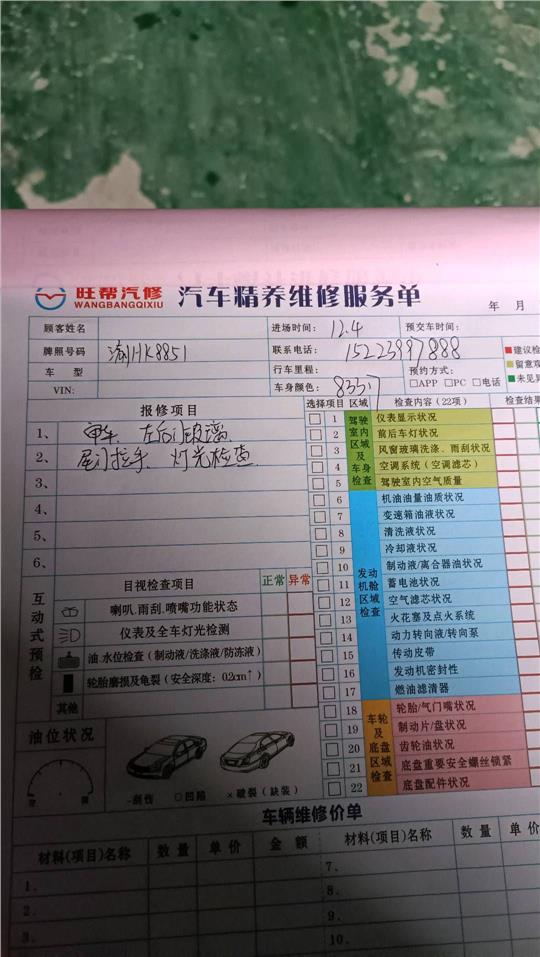 旺帮汽修
WANGBANGQIXIU
汽车精养维修服务单
年 月
顾客姓名 进场时间: 12.4 预交车时间:
牌照号码 HK8851 联系电话: 15223997888
车 型 行车里程: 预约方式:
VIN: 车身颜色: □APP □PC □电话
建议检
留意观
未见异
报修项目
1、 左后门玻璃
2、 尾门拉手. 灯光检查
3、
4、
5、
6、
选择项目 区域 检查内容(22项) 检查结果
驾驶室内区域及车身检查
1 仪表显示状况
2 前后车灯状况
3 风窗玻璃洗涤、雨刮状况
4 空调系统(空调滤芯)
5 驾驶室内空气质量
发动机舱区域检查
6 机油油量油质状况
7 变速箱油液状况
8 清洗液状况
9 冷却液状况
10 制动液/离合器油状况
11 蓄电池状况
12 空气滤芯状况
13 火花塞及点火系统
14 动力转向液/转向泵
15 传动皮带
16 发动机密封性
17 燃油滤清器
车轮及底盘区域检查
18 轮胎/气门嘴状况
19 制动片/盘状况
20 齿轮油状况
21 底盘重要安全螺丝锁紧
22 底盘配件状况
互动式预检
目视检查项目 正常 异常
喇叭.雨刮.喷嘴功能状态
仪表及全车灯光检测
油.水位检查(制动液/洗涤液/防冻液)
轮胎磨损及龟裂(安全深度:0.2cm↑)
其他
油位状况
空 满
-刮伤 ○凹陷 ×破裂(缺装)
车辆维修价单
材料(项目)名称 数量 单价 金额 材料(项目)名称 数量 单价
1、 7、
2、 8、
3、 9、
10、